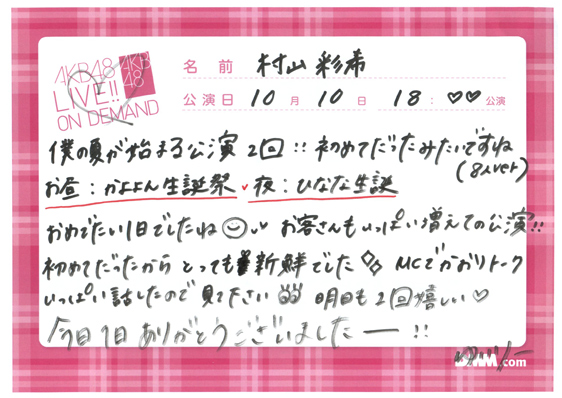 AKB48
LIVE!!
ON DEMAND
AKB
48
名前 村山彩希
公演日 10月10日 18:♡♡公演
僕の夏が始まる公演2回!! 初めてだったみたいですね
(8人ver)
お昼:かよよん生誕祭、夜:ひなな生誕
おめでたい1日でしたね お客さんもいっぱい増えての公演!!
初めてだったから とっても新鮮でした MCでかおりトーク
いっぱい話したので見て下さい 明日も2回嬉しい♡
今日1日ありがとうございましたー!!
DMM.com